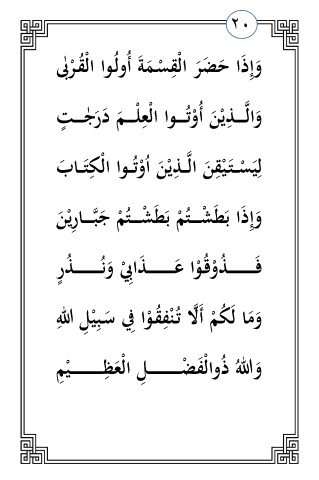 ٢٠
وَإِذَا حَضَرَ الْقِسْمَةَ أُولُوا الْقُرْبٰى
وَالَّذِيْنَ أُوْتُوا الْعِلْمَ دَرَجٰتٍ
لِيَسْتَيْقِنَ الَّذِيْنَ اُوْتُوا الْكِتَابَ
وَإِذَا بَطَشْتُمْ بَطَشْتُمْ جَبَّارِيْنَ
فَذُوْقُوْا عَذَابِيْ وَنُذُرِ
وَمَا لَكُمْ أَلَّا تُنْفِقُوْا فِي سَبِيْلِ اللهِ
وَاللهُ ذُوالْفَضْلِ الْعَظِيْمِ